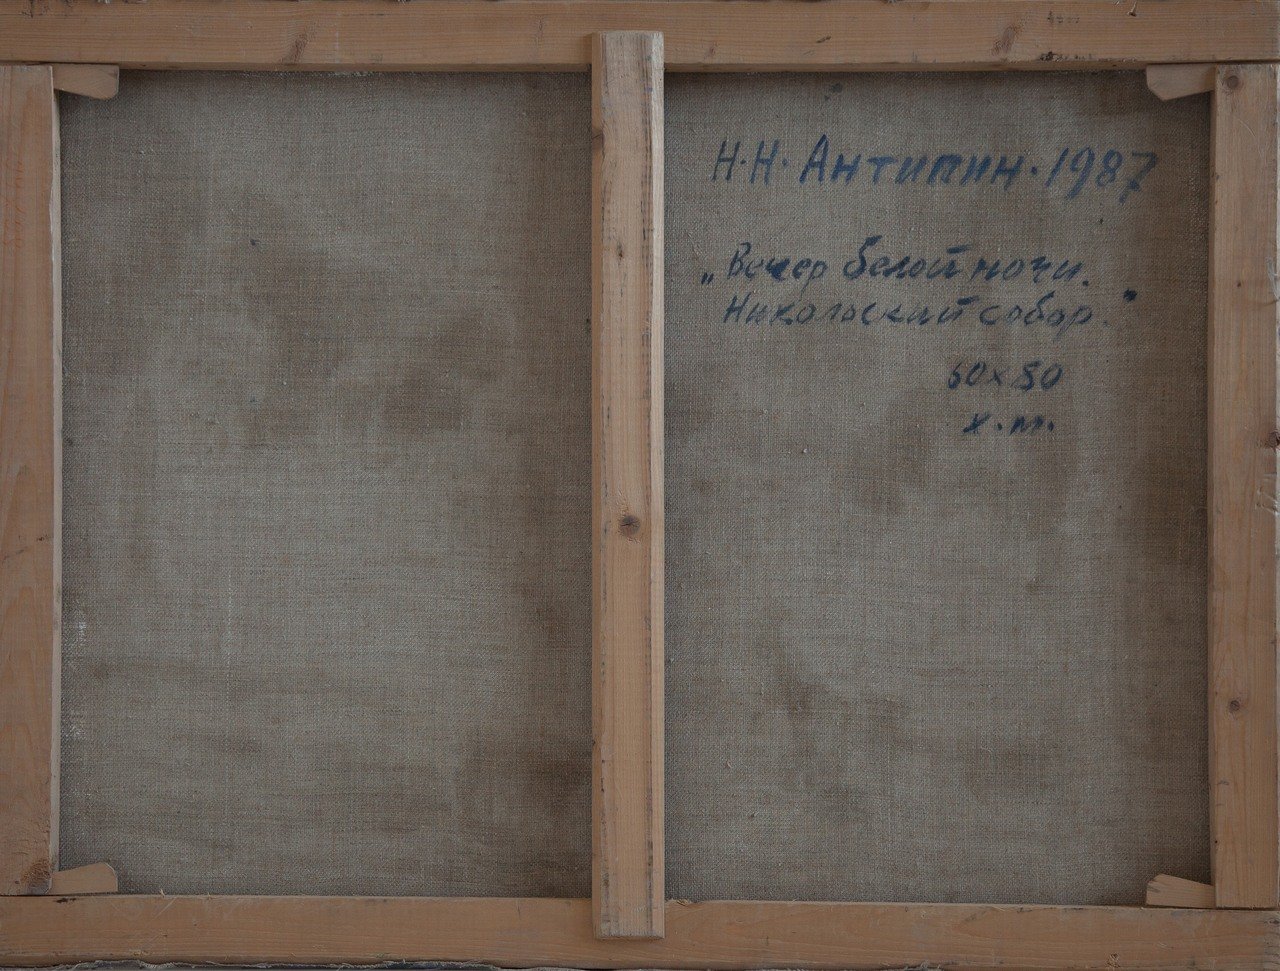 Н.Н. Антипин. 1987
„Вечер белой ночи.
Никольский собор."
60х80
х.м.